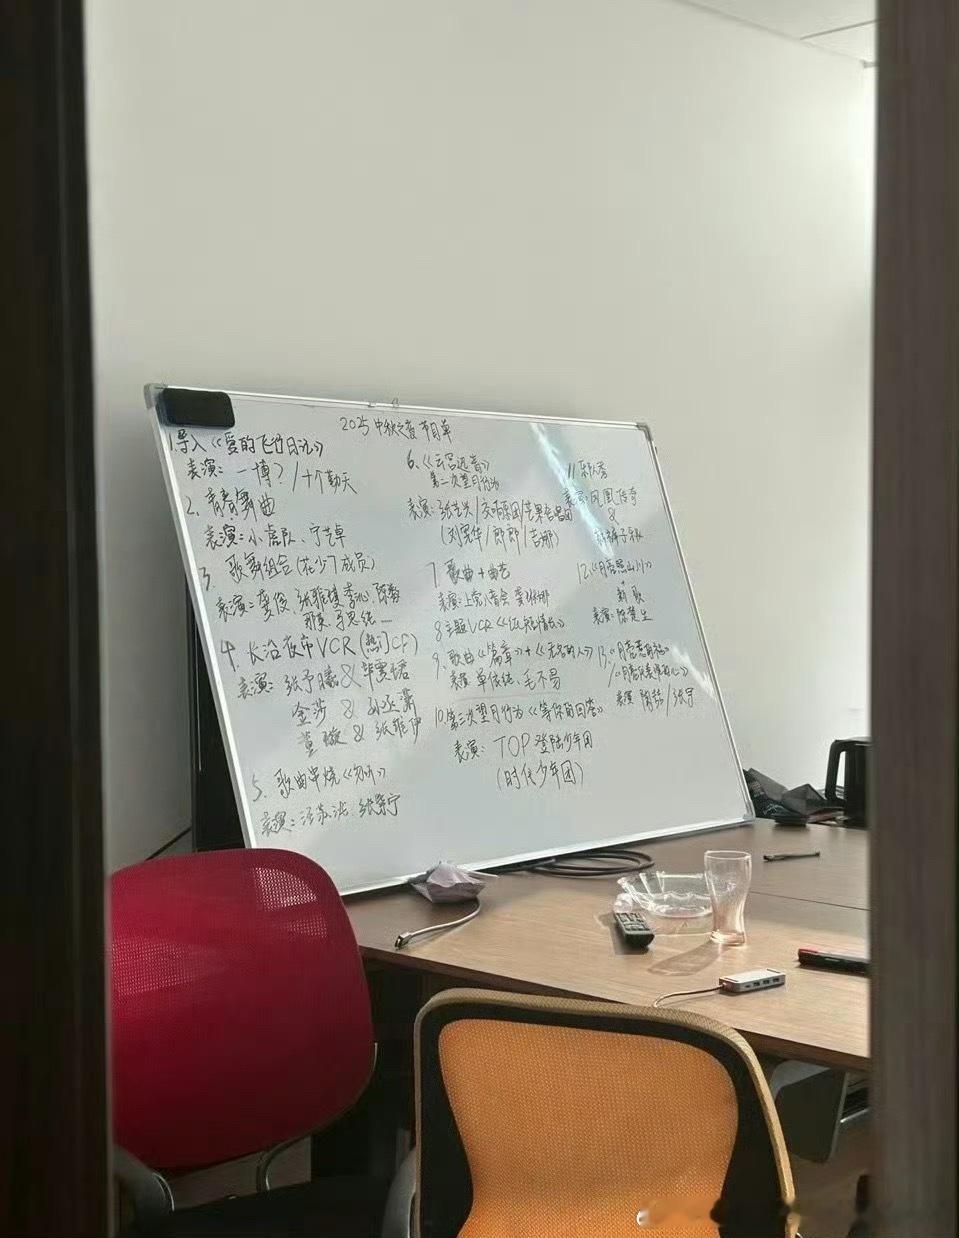 2025中秋之夜节目单
1.导入《爱的飞行日记》
表演:一博?/十个勤天
2.青春舞曲
表演:小虎队、宁艺卓
3.歌舞组合(花少7成员)
表演:龚俊、张雅
那英、
4.长沙夜市VCR(热门CP)
表演:张予曦&毕雯珺
金莎&孙丞潇
董璇&张维伊
5.歌曲串烧《
表演:汪苏泷、张
6.《云宫迅音》
第二次望月行为
表演:张艺兴/交响乐团/苹果合唱团
(刘宪华/郎朗/吉娜)
7.歌曲+曲艺
表演:上党八音会 龚琳娜
8.主题VCR《
9.歌曲《篇章》+《无名的人》
表演 单依纯、毛不易
10.第三次望月行为《等你的回答》
表演:TOP登陆少年团
(时代少年团)
11.
表演:凤凰传奇
&
12.《月亮照山川》
新歌
表演:陈楚生
13.《月亮惹的祸》
/《月亮代表我的心》
表演 /张宇